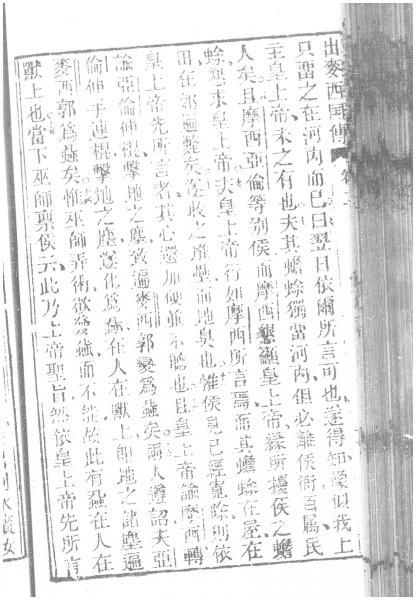 出麥西囯傳 卷一
只畱之在河內而已曰翌日依爾所言可也遂得知像似我上
主皇上帝未之有也夫其蟾蜍獨當河內但必離侯衙百属民
人矣且摩西亞倫等別侯而摩西懇籲皇上帝緣所擾侯之蟾
蜍懇求皇上帝夫皇上帝行如摩西所言焉而其蟾蜍在屋在
田在郊遍斃矣遂收之堆壘而地臭也惟侯見已經寬除則依
皇上帝先所言者其心還加硬並不聽也且皇上帝諭摩西轉
諭亞倫伸棍擊地之塵致遍麥西郭變爲蟲矣兩人遵詔夫亞
倫伸手連棍擊地之塵遂化爲蝨在人在獸上即地之諸塵遍
麥西郭爲蟲矣惟巫師弄術欲發蟲而不能於此有蝨在人在
獸上也當下巫師禀侯云此乃上帝聖旨然依皇上帝先所言